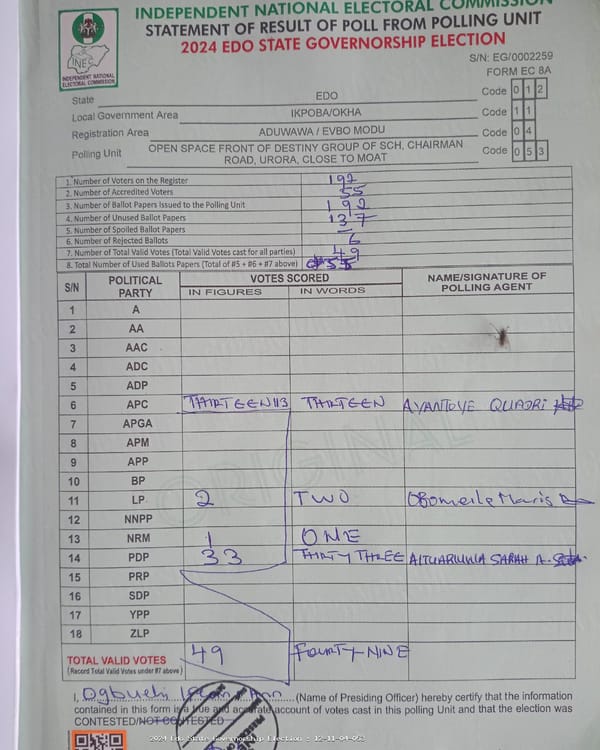 INDEPENDENT NATIONAL ELECTORAL COMMISSION
STATEMENT OF RESULT OF POLL FROM POLLING UNIT
2024 EDO STATE GOVERNORSHIP ELECTION
INEC
INDEPENDENT NATIONAL
ELECTORAL COMMISSION
S/N: EG/0002259
FORM EC 8A
State EDO Code 0 1 2
Local Government Area IKPOBA/OKHA Code 1 1
Registration Area ADUWAWA / EVBO MODU Code 0 4
Polling Unit OPEN SPACE FRONT OF DESTINY GROUP OF SCH, CHAIRMAN ROAD, URORA, CLOSE TO MOAT Code 0 5 3
1. Number of Voters on the Register 192
2. Number of Accredited Voters 55
3. Number of Ballot Papers Issued to the Polling Unit 192
4. Number of Unused Ballot Papers 137
5. Number of Spoiled Ballot Papers –
6. Number of Rejected Ballots 6
7. Number of Total Valid Votes (Total Valid Votes cast for all parties) 49
8. Total Number of Used Ballots Papers (Total of #5 + #6 + #7 above) 55
S/N POLITICAL PARTY VOTES SCORED NAME/SIGNATURE OF POLLING AGENT
IN FIGURES IN WORDS
1 A
2 AA
3 AAC
4 ADC
5 ADP
6 APC THIRTEEN 13 THIRTEEN AYANTOYE QUADRI
7 APGA
8 APM
9 APP
10 BP
11 LP 2 TWO
12 NNPP
13 NRM 1 ONE
14 PDP 33 THIRTY THREE SARAH A.
15 PRP
16 SDP
17 YPP
18 ZLP
TOTAL VALID VOTES 49 FOURTY-NINE
(Record Total Valid Votes under #7 above)
ORIGINAL
I, Ann (Name of Presiding Officer) hereby certify that the information
contained in this form is a true and accurate account of votes cast in this polling Unit and that the election was
CONTESTED/NOT CONTESTED
2024 Edo State Governorship Election : 12-11-04-053